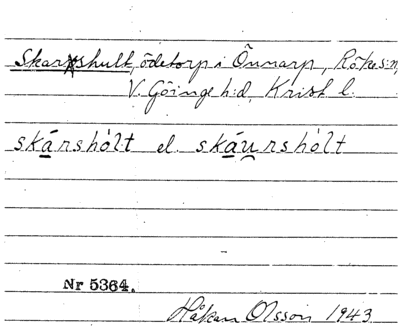 Skarshult, ödetorp i Önnarp, Röke s:n,
V. Göinge h:d, Krist. l.
skárshól't el. skáurshól't
Nr 5364.
Håkan Olsson 1943